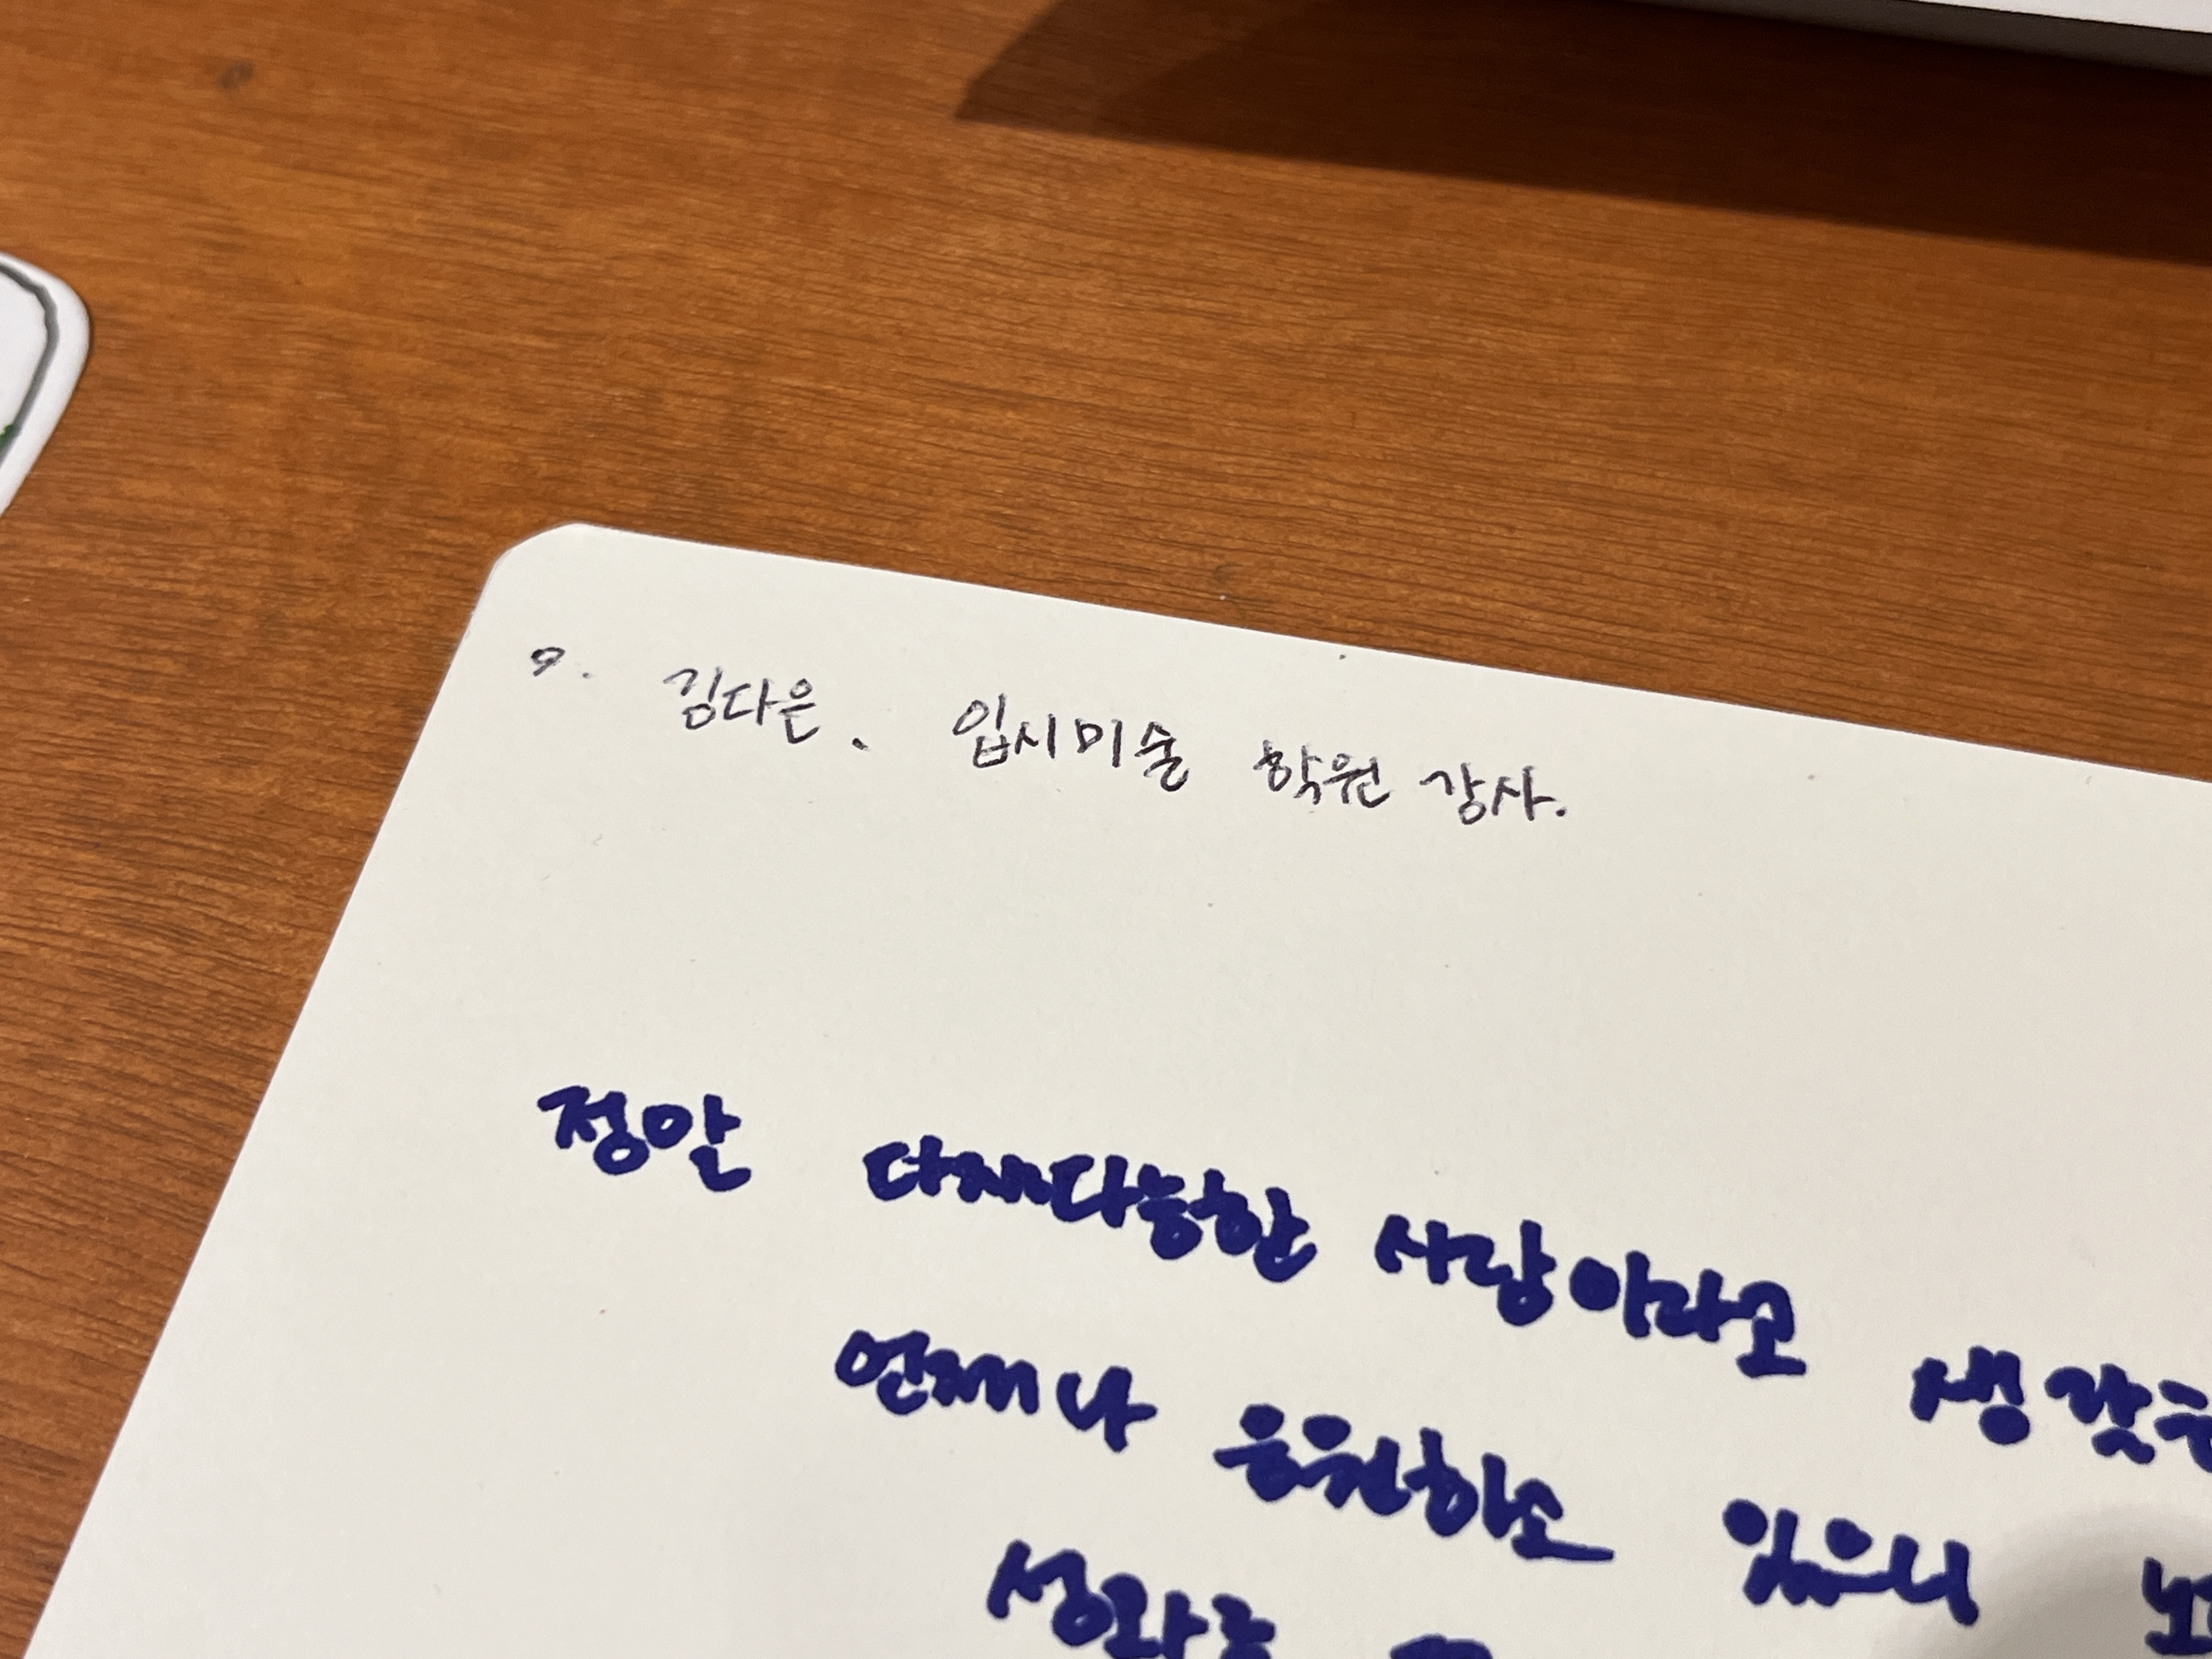 9. 김다은. 입시미술 학원 강사.
정말 다재다능한 사람이라고
언제나 응원하고 있으니
성과를